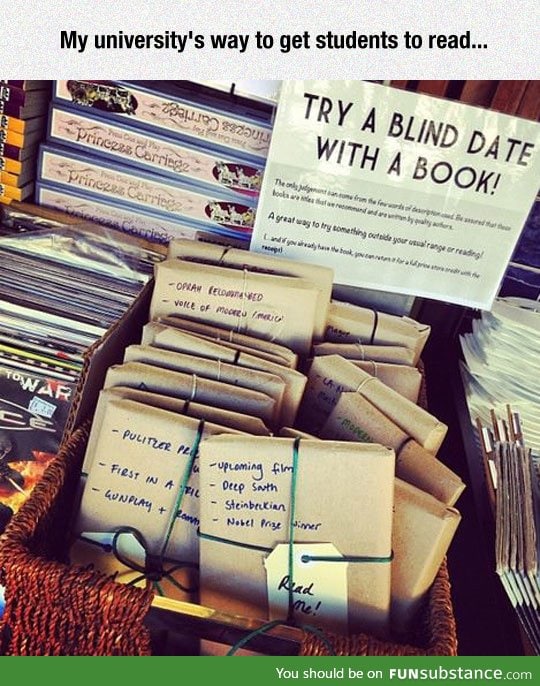 My university's way to get students to read...
Press Out and Play
Princess Carriage
Press Out and Play
Princess Carriage
Press Out and Play
Princess Carriage
Press Out and Play
Princess Carriage
TRY A BLIND DATE
WITH A BOOK!
The only judgement can come from the few words of description used. Be assured that these
books are titles that we recommend and are written by quality authors.
A great way to try something outside your usual range or reading!
(...and if you already have the book, you can return it for a full price store credit with the
receipt)
- OPRAH RECOMMENDED
- VOICE OF MODERN AMERICA
WAR
- PULITZER
- FIRST IN A
- GUNPLAY +
- upcoming film
- Deep South
- Steinbeckian
- Nobel Prize Winner
Read
Me!
You should be on FUNsubstance.com